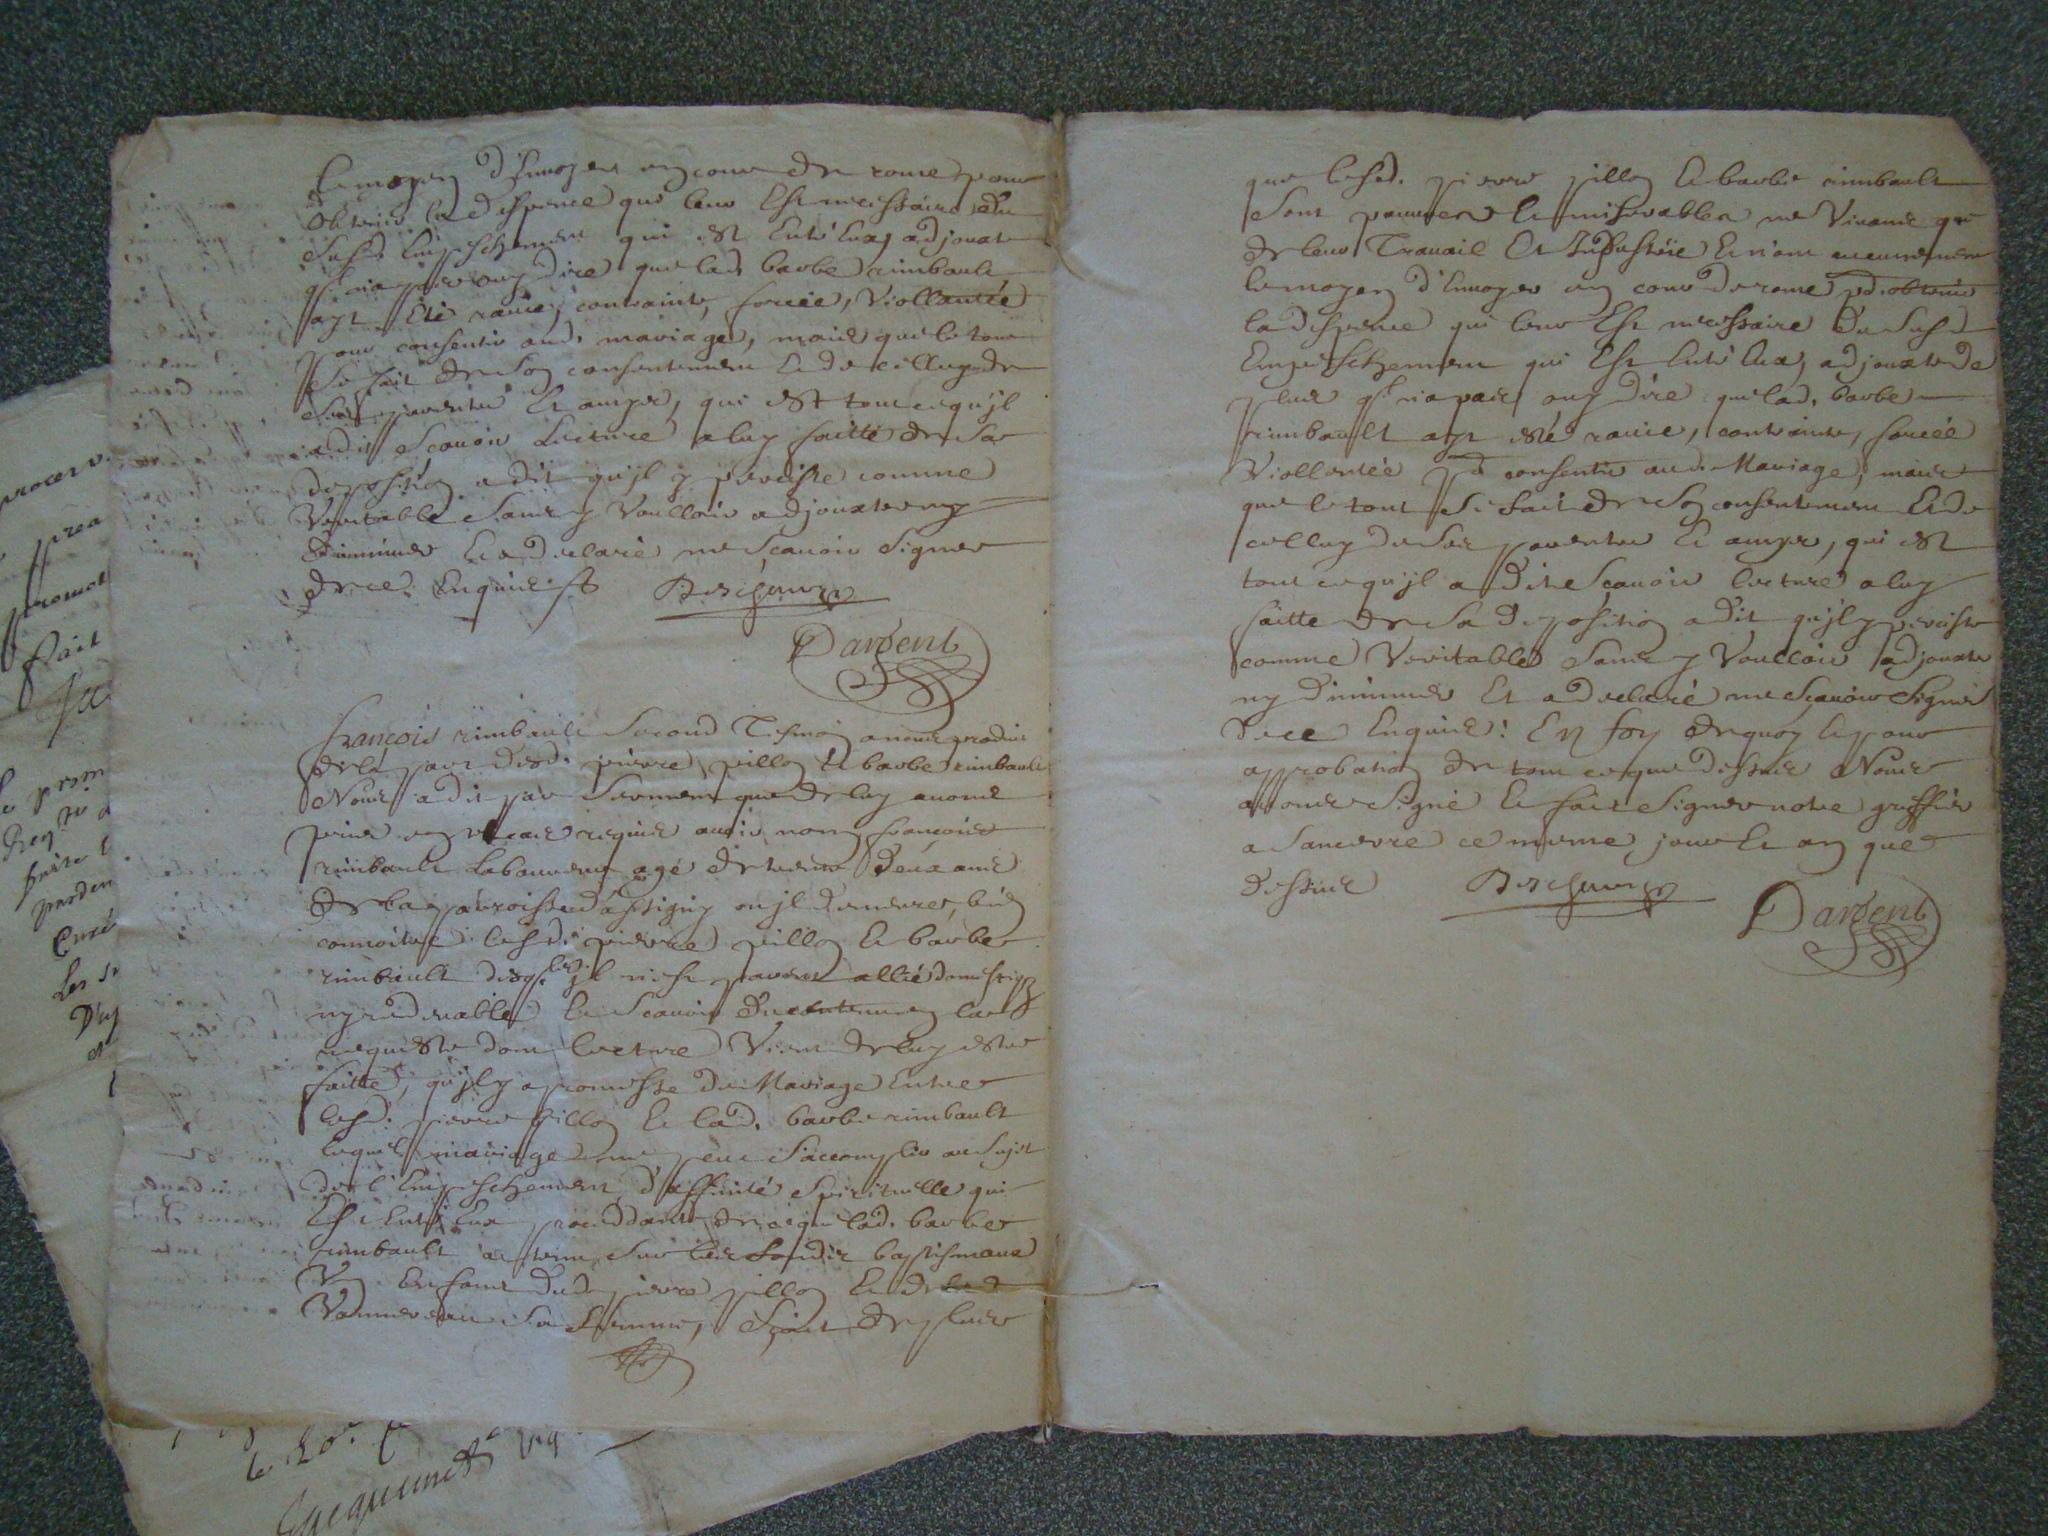 le moyen d'Envoyer en cour de rome pour
obtenir la dispence qui leur Est necessaire du
susd. Empeschement qui est Entr'Eux, adjouste
qu'il n'a pas ouy dire que lad. barbe rimbault
ayt Eté ravie, contrainte, forcée, viollantée
pour consentir aud. mariage, mais que le tout
se fait de son consentement Et de celluy de
ses parentes Et amys, qui est tout ce qu'jl
a dit scavoir Lecture a luy faitte de sa
deposition a dit qu'jl y persiste comme
veritable sans y voulloir adjouster ny
diminuer Et a declaré ne scavoir signer
de ce Enquis
Dargent
françois rimbault second Tesmoin a nous produit
de la part desd. pierre pillon Et barbe rimbault
Nous a dit par serment que de luy avons
pris en tel cas requis avoir nom françois
rimbault Laboureur agé de trente deux ans
de la parroisse d'assigny ou jl demeure, bien
connoitre lesd. pierre pillon Et barbe
rimbault desquels jl n'est parent allié domestique
ny redevable Et scavoir du contenu en la
requeste dont lecture vient de luy estre
faitte, qu'jl y a promesse de Mariage Entre
lesd. pierre pillon Et lad. barbe rimbault
lequel mariage ne peut s'accomplir au sujet
de l'Empeschement d'affinité spirituelle qui
Est Entr'Eux proceddante de ce que lad. barbe
rimbault a tenu sur les fonds baptismaux
Un Enfant dud. pierre pillon Et de
sa femme, scait de plus
que lesd. pierre pillon Et barbe rimbault
sont pauvres Et miserables ne vivant que
de leur Travail Et Industrie Et n'ont aucunement
le moyen d'Envoyer en cour de rome pr. obtenir
la dispence qui leur Est necessaire du susd.
Empeschement qui Est Entr'Eux, adjouste de
plus qu'il n'a pas ouy dire que lad. barbe
rimbault ayt esté ravie, contrainte, forcée
viollentée pr. consentir aud. Mariage, mais
que le tout se fait de son consentement Et de
celluy de ses parentes Et amys, qui est
tout ce qu'jl a dit scavoir lecture a luy
faitte de sa deposition a dit qu'jl y persiste
comme veritable sans y voulloir adjouster
ny diminuer Et a declaré ne scavoir signer
de ce Enquis: En foy de quoy Et pour
approbation de tout ce que dessus Nous
avons signé Et fait signer notre greffier
a sancerre ce meme jour Et an que
dessus
Dargent